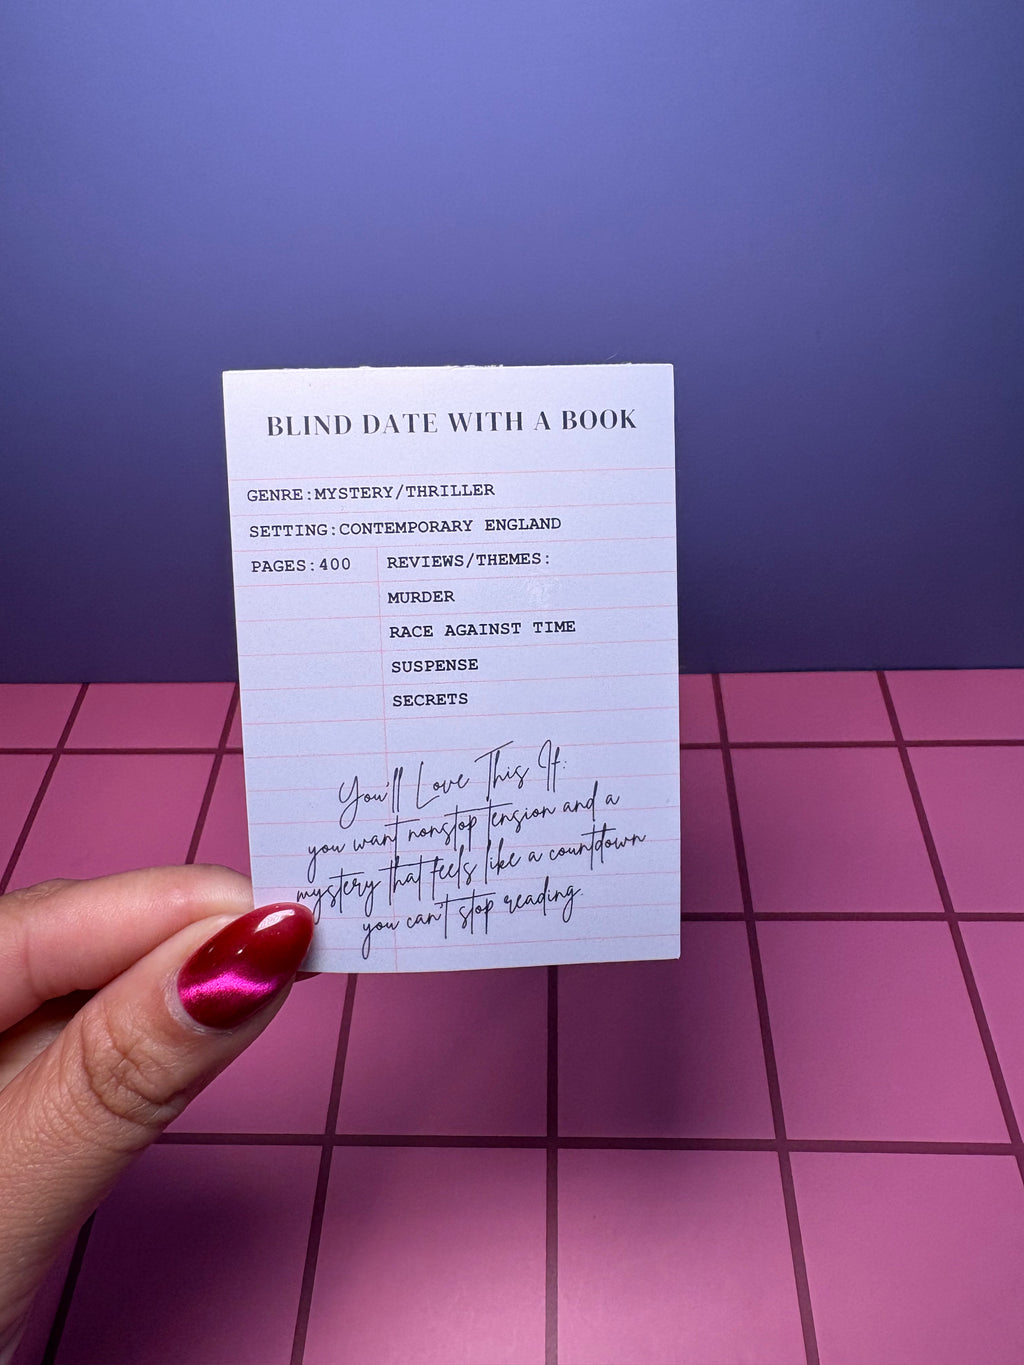 BLIND DATE WITH A BOOK
GENRE:MYSTERY/THRILLER
SETTING:CONTEMPORARY ENGLAND
PAGES:400
REVIEWS/THEMES:
MURDER
RACE AGAINST TIME
SUSPENSE
SECRETS
You'll Love This If:
you want nonstop tension and a
mystery that feels like a countdown
you can't stop reading.